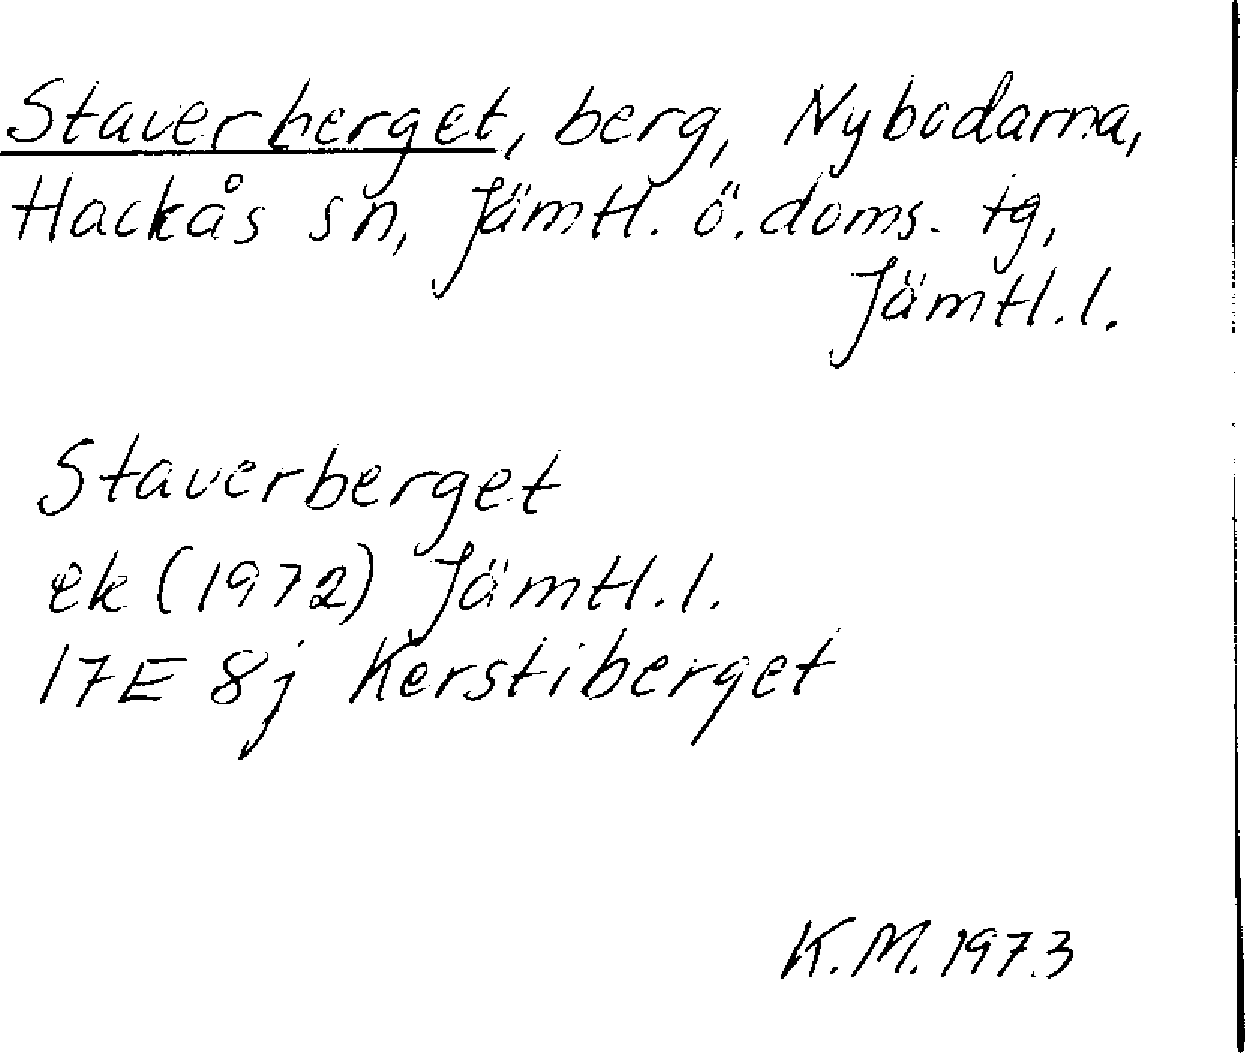 Staverberget, berg, Nybodarna,
Hackås sn, Jämtl. ö. doms. tg,
Jämtl. l.
Staverberget
ek (1972) Jämtl. l.
17E 8j Kerstiberget
K.M. 1973